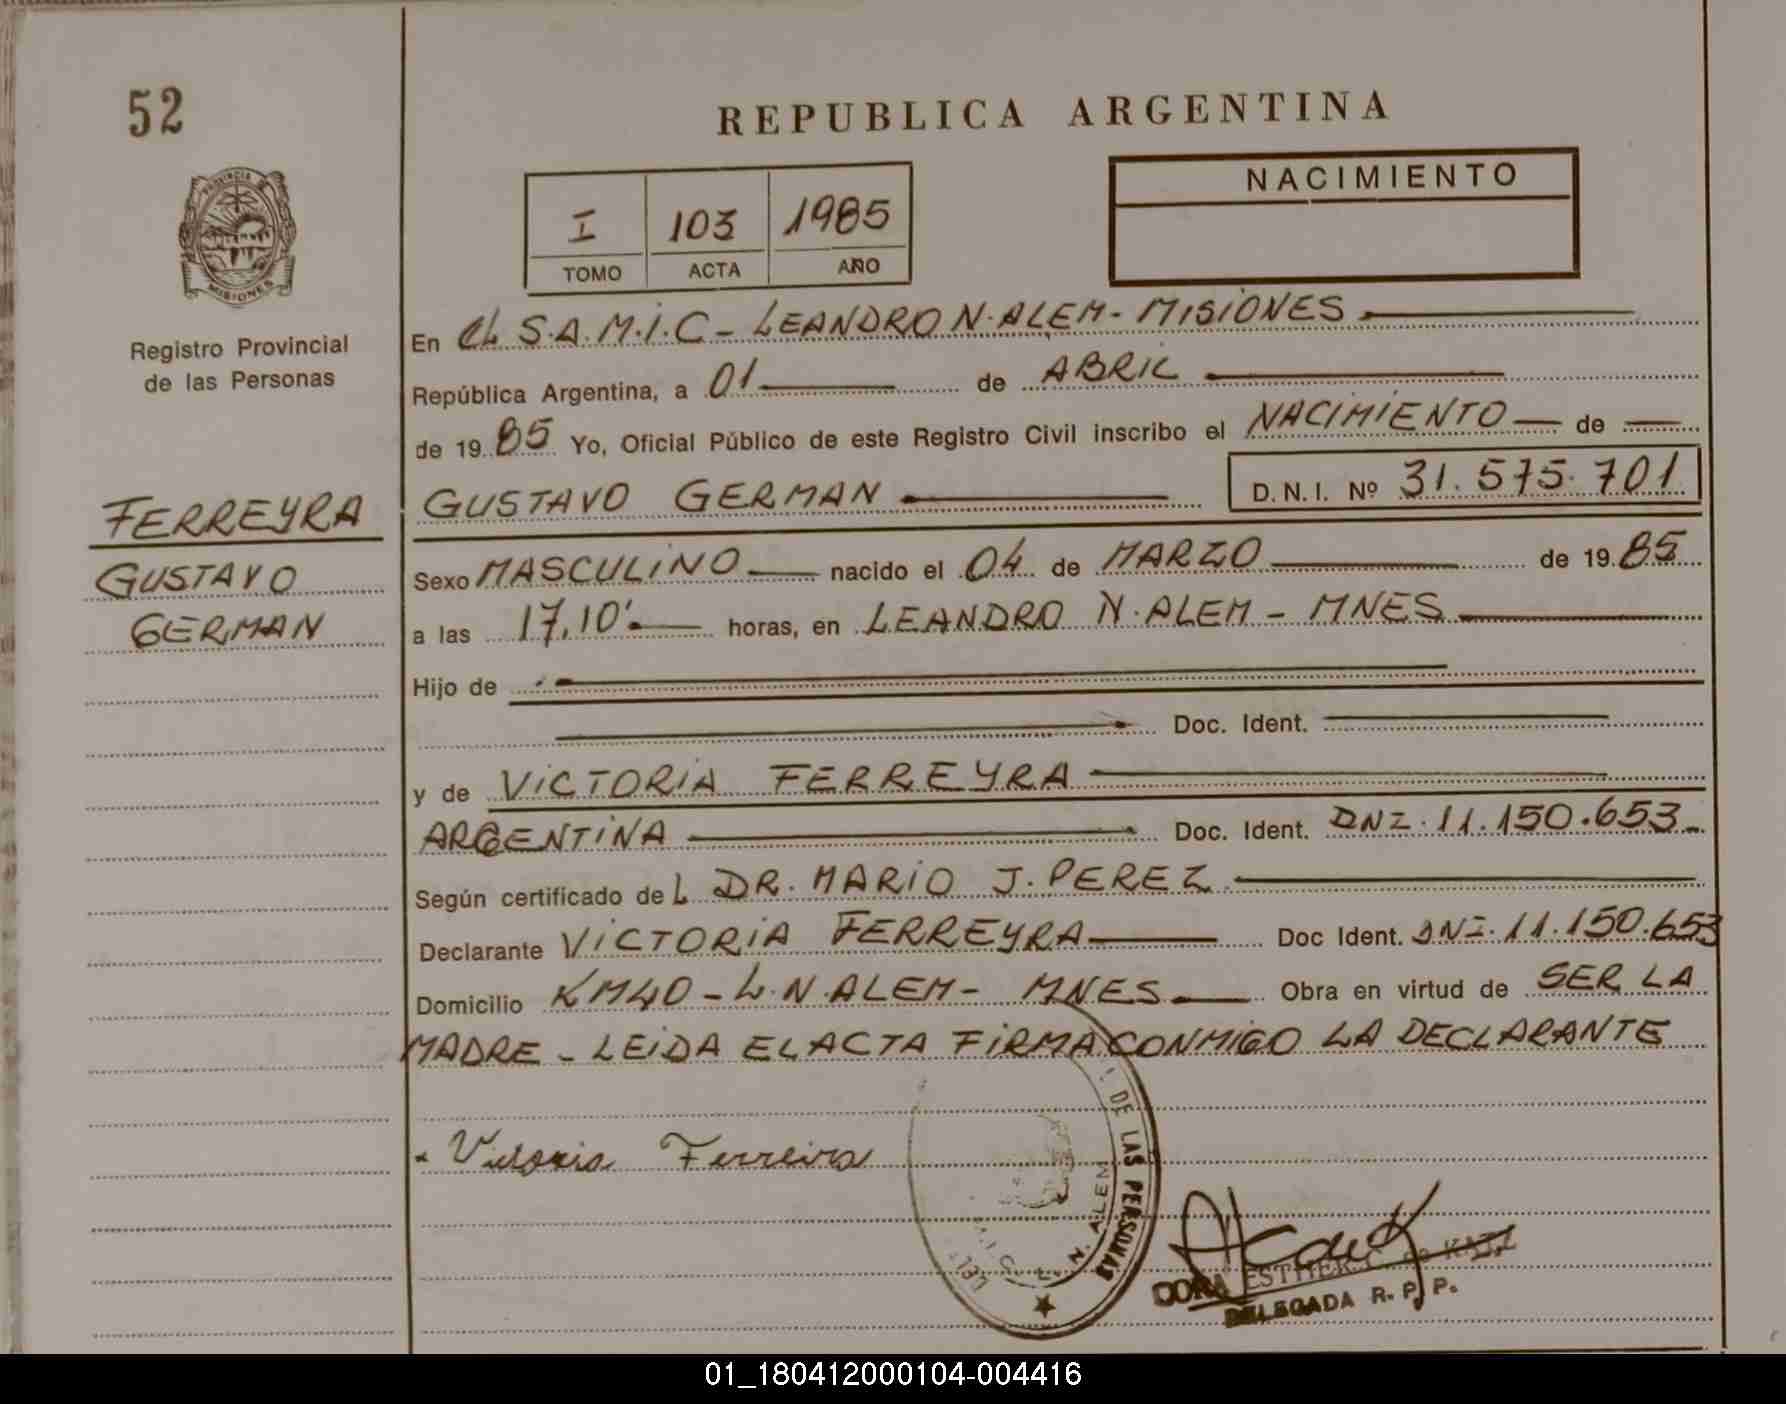 52
REPUBLICA ARGENTINA
PROVINCIA DE
MISIONES
Registro Provincial
de las Personas
I 103 1985
TOMO ACTA AÑO
NACIMIENTO
En EL S.A.M.I.C - LEANDRO N. ALEM - MISIONES
República Argentina, a 01 de ABRIL
de 1985 Yo, Oficial Público de este Registro Civil inscribo el NACIMIENTO de
GUSTAVO GERMAN D.N.I. Nº 31.575.701
FERREYRA
GUSTAVO
GERMAN
Sexo MASCULINO nacido el 04 de MARZO de 1985
a las 17,10' horas, en LEANDRO N. ALEM - MNES
Hijo de
Doc. Ident.
y de VICTORIA FERREYRA
ARGENTINA Doc. Ident. DNI. 11.150.653
Según certificado del DR. MARIO J. PEREZ
Declarante VICTORIA FERREYRA Doc Ident. DNI. 11.150.653
Domicilio KM40 - L.N. ALEM - MNES Obra en virtud de SER LA
MADRE - LEIDA EL ACTA FIRMA CONMIGO LA DECLARANTE
Victoria Ferreira
DE LAS PERSONAS
N. ALEM
DORA ESTHER C. de KATZ
DELEGADA R. P. P.
01_180412000104-004416